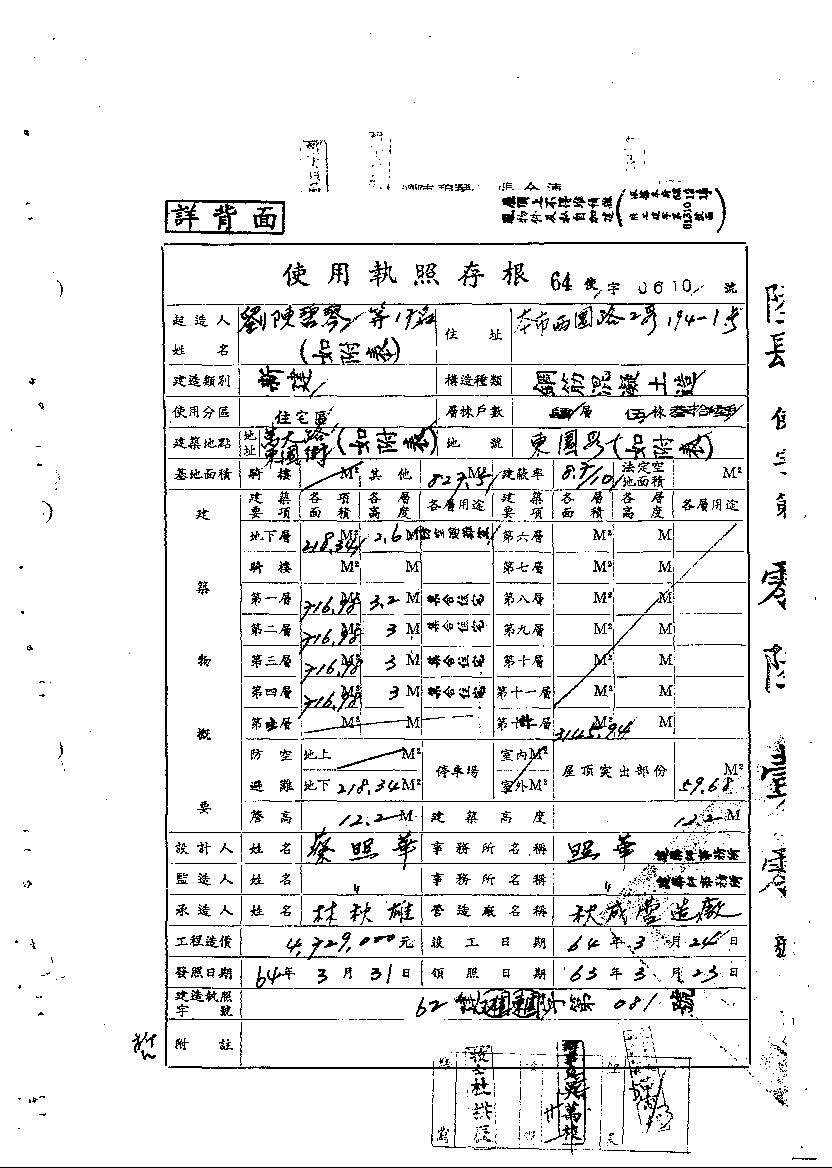 詳背面
屋頂上不得增建
使用執照存根 64 使字 0610 號
起造人姓名 劉陳碧琴 等17名 (如附表) 住址 本市西園路2号194-1号
建造類別 新建 構造種類 鋼筋混凝土造
使用分區 住宅區 層棟戶數 層 伍棟
建築地點 地址 萬大路 東園街 (如附表) 地號 東園段 (如附表)
基地面積 騎樓 M² 其他 M² 建蔽率 法定空地面積 M²
建築物概要
建築要項 各項面積 各層高度 各層用途 建築要項 各層面積 各層高度 各層用途
地下層 218.34 M² 2.6 M 第六層 M² M
騎樓 M² M 第七層 M² M
第一層 716.98 M² 3.2 M 集合住宅 第八層 M² M
第二層 716.98 M² 3 M 集合住宅 第九層 M² M
第三層 716.98 M² 3 M 集合住宅 第十層 M² M
第四層 716.98 M² 3 M 集合住宅 第十一層 M² M
第五層 M² M 第 層 M² M
防空避難 地上 M² 停車場 室內 M² 屋頂突出部份 59.68 M²
地下 218.34 M² 室外 M²
簷高 12.2 M 建築高度 12.2 M
設計人 姓名 蔡照華 事務所名稱 照華 建築師事務所
監造人 姓名 〃 事務所名稱 〃 建築師事務所
承造人 姓名 林秋雄 營造廠名稱 秋成營造廠
工程造價 4,729,000元 竣工日期 64年3月24日
發照日期 64年3月31日 領照日期 63年3月23日
建造執照字號 62 081 號
附註